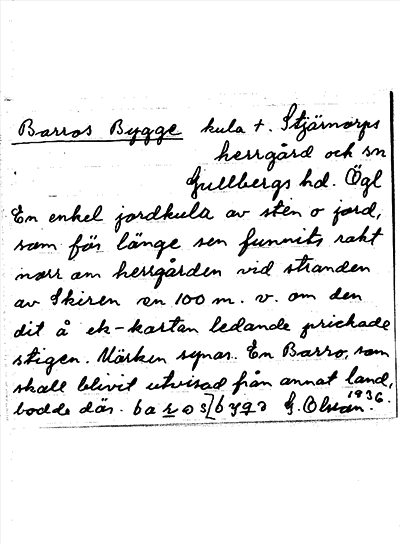 Barros Bygge kula t. Stjärnorps
herrgård och sn
Gullbergs hd. Ögl
En enkel jordkula av sten o jord,
som för länge sen funnits rakt
norr om herrgården vid stranden
av Skiren en 100 m. v. om den
dit å ek-kartan ledande prickade
stigen. Märken synas. En Barro, som
skall blivit utvisad från annat land,
bodde där. baros]bygə G. Olson. 1936.